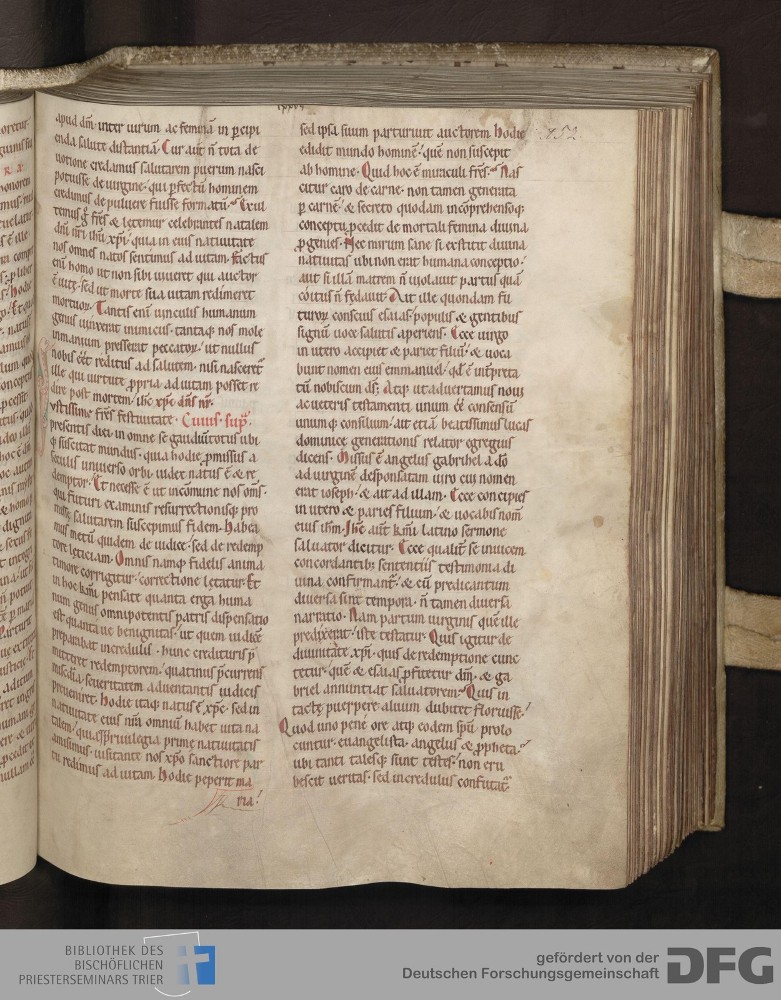 apud dm̄ inter uirum ac feminā in ꝑcipi
enda salute distantiā. Cur aut̄ n̄ tota de
uotione credamus salutarem puerum nasci
potuisse de uirgine. qui ꝑfectū hominem
credimus de puluere fuisse formatū. Exul
temus g̊ fr̄s & letemur celebrantes natalem
dn̄i nr̄i ihū xp̄i. quia in eius natiuitate
nos omnes natos sentimus ad uitam. Factus
eni homo ut non sibi uiueret qui auctor
ē uitę. sed ut morte sua uitam redimeret
mortuoꝝ. Tantis eni uinculis humanum
genus uinxerat inimicus. tantaqꝫ nos mole
immanium presserat peccatoꝝ. ut nullus
nobis ēēt reditus ad salutem. nisi nasceret᷑
ille qui uirtute ꝓpria ad uitam posset re
dire post mortem. ihc xp̄c dn̄s nr̄.
ustissime fr̄s festiuitate. Cuius. sup͛.
presentis diei in omne se gaudiū totus ubi
qꝫ suscitat mundus. quia hodie ꝓmissus a
seculis uniuerso orbi iudex natus ē & re
demptor. Et necesse ē ut incōmune nos om̄s.
qui futuri examinis resurrectionisqꝫ pro
missę salutarem suscepimus fidem. habea
mus metū quidem de iudice. sed de redemp
tore leticiam. Omnis namqꝫ fidelis anima
timore corrigitur. correctione letatur. Et
in hoc kmi pensate quanta erga huma
num genus omnipotentis patris dispensatio
est. quanta ue benignitas. ut quem iudicē
preparabat incredulis. hunc credituris p̄
mitteret redemptorem. quatinus p̄currens
miscdia seueritatem aduentantis iudicis
preueniret. Hodie itaqꝫ natus ē xp̄c. sed in
natiuitate eius nr̄a omniū habet uita na
talem. qui ꝓ priuilegia primę natiuitatis
amisimus. uisitante nos xp̄o sanctiore par
tu redimus ad uitam. Hodie peperit ma
ria.
sed ipsa suum parturiuit auctorem. Hodie
edidit mundo hominē. quē non suscepit
ab homine. Quid hoc ē miraculi fr̄s. Nas
citur caro de carne. non tamen generata
ꝑ carnē. & secreto quodam incōprehensoqꝫ
conceptu ꝓcedit de mortali femina diuina
ꝓgenies. Nec mirum sane si extitit diuina
natiuitas ubi non erat humana conceptio.
aut si illā matrem n̄ uiolauit partus quā
coitus n̄ fędauit. Ait ille quondam fu
turoꝝ conscius esaias. populis & gentibus
signū uoce salutis aperiens. Ecce uirgo
in utero accipiet & pariet filiū. & uoca
bunt nomen eius emmanuel. qd̄ ē int̄preta
tū nobiscum ds̄. Atqꝫ ut aduertamus noui
ac ueteris testamenti unum ēē consensū
unumqꝫ consilium. ait etiā beatissimus lucas
dominicę generationis relator egregius
dicens. Missus ē angelus gabrihel a do
ad uirginē desponsatam uiro cui nomen
erat ioseph. & ait ad illam. Ecce concipies
in utero & paries filium. & uocabis nom̄
eius ihm̄. Ihc aut̄ kmi latino sermone
saluator dicitur. Ecce qualit̄ se inuicem
concordantibꝫ sententiis testimonia di
uina confirmant᷑. & cū predicantum
diuersa sint tempora. n̄ tamen diuersa
narratio. Nam partum uirginis quē ille
predixerat. iste testatur. Quis igitur de
diuinitate xp̄i. quis de redemptione cunc
tetur. quē & esaias ꝓfitetur dm̄. & ga
briel annuntiat saluatorem. Quis in
tactę puerperę aluum dubitet floruisse.
Quod uno pene ore atqꝫ eodem sp̄u ꝓlo
cuntur. euangelista. angelus & ꝓpheta.
ubi tanti talesqꝫ sunt testes. non eru
bescit ueritas. sed incredulus confutat᷑.
BIBLIOTHEK DES
BISCHÖFLICHEN
PRIESTERSEMINARS TRIER
gefördert von der
Deutschen Forschungsgemeinschaft
DFG